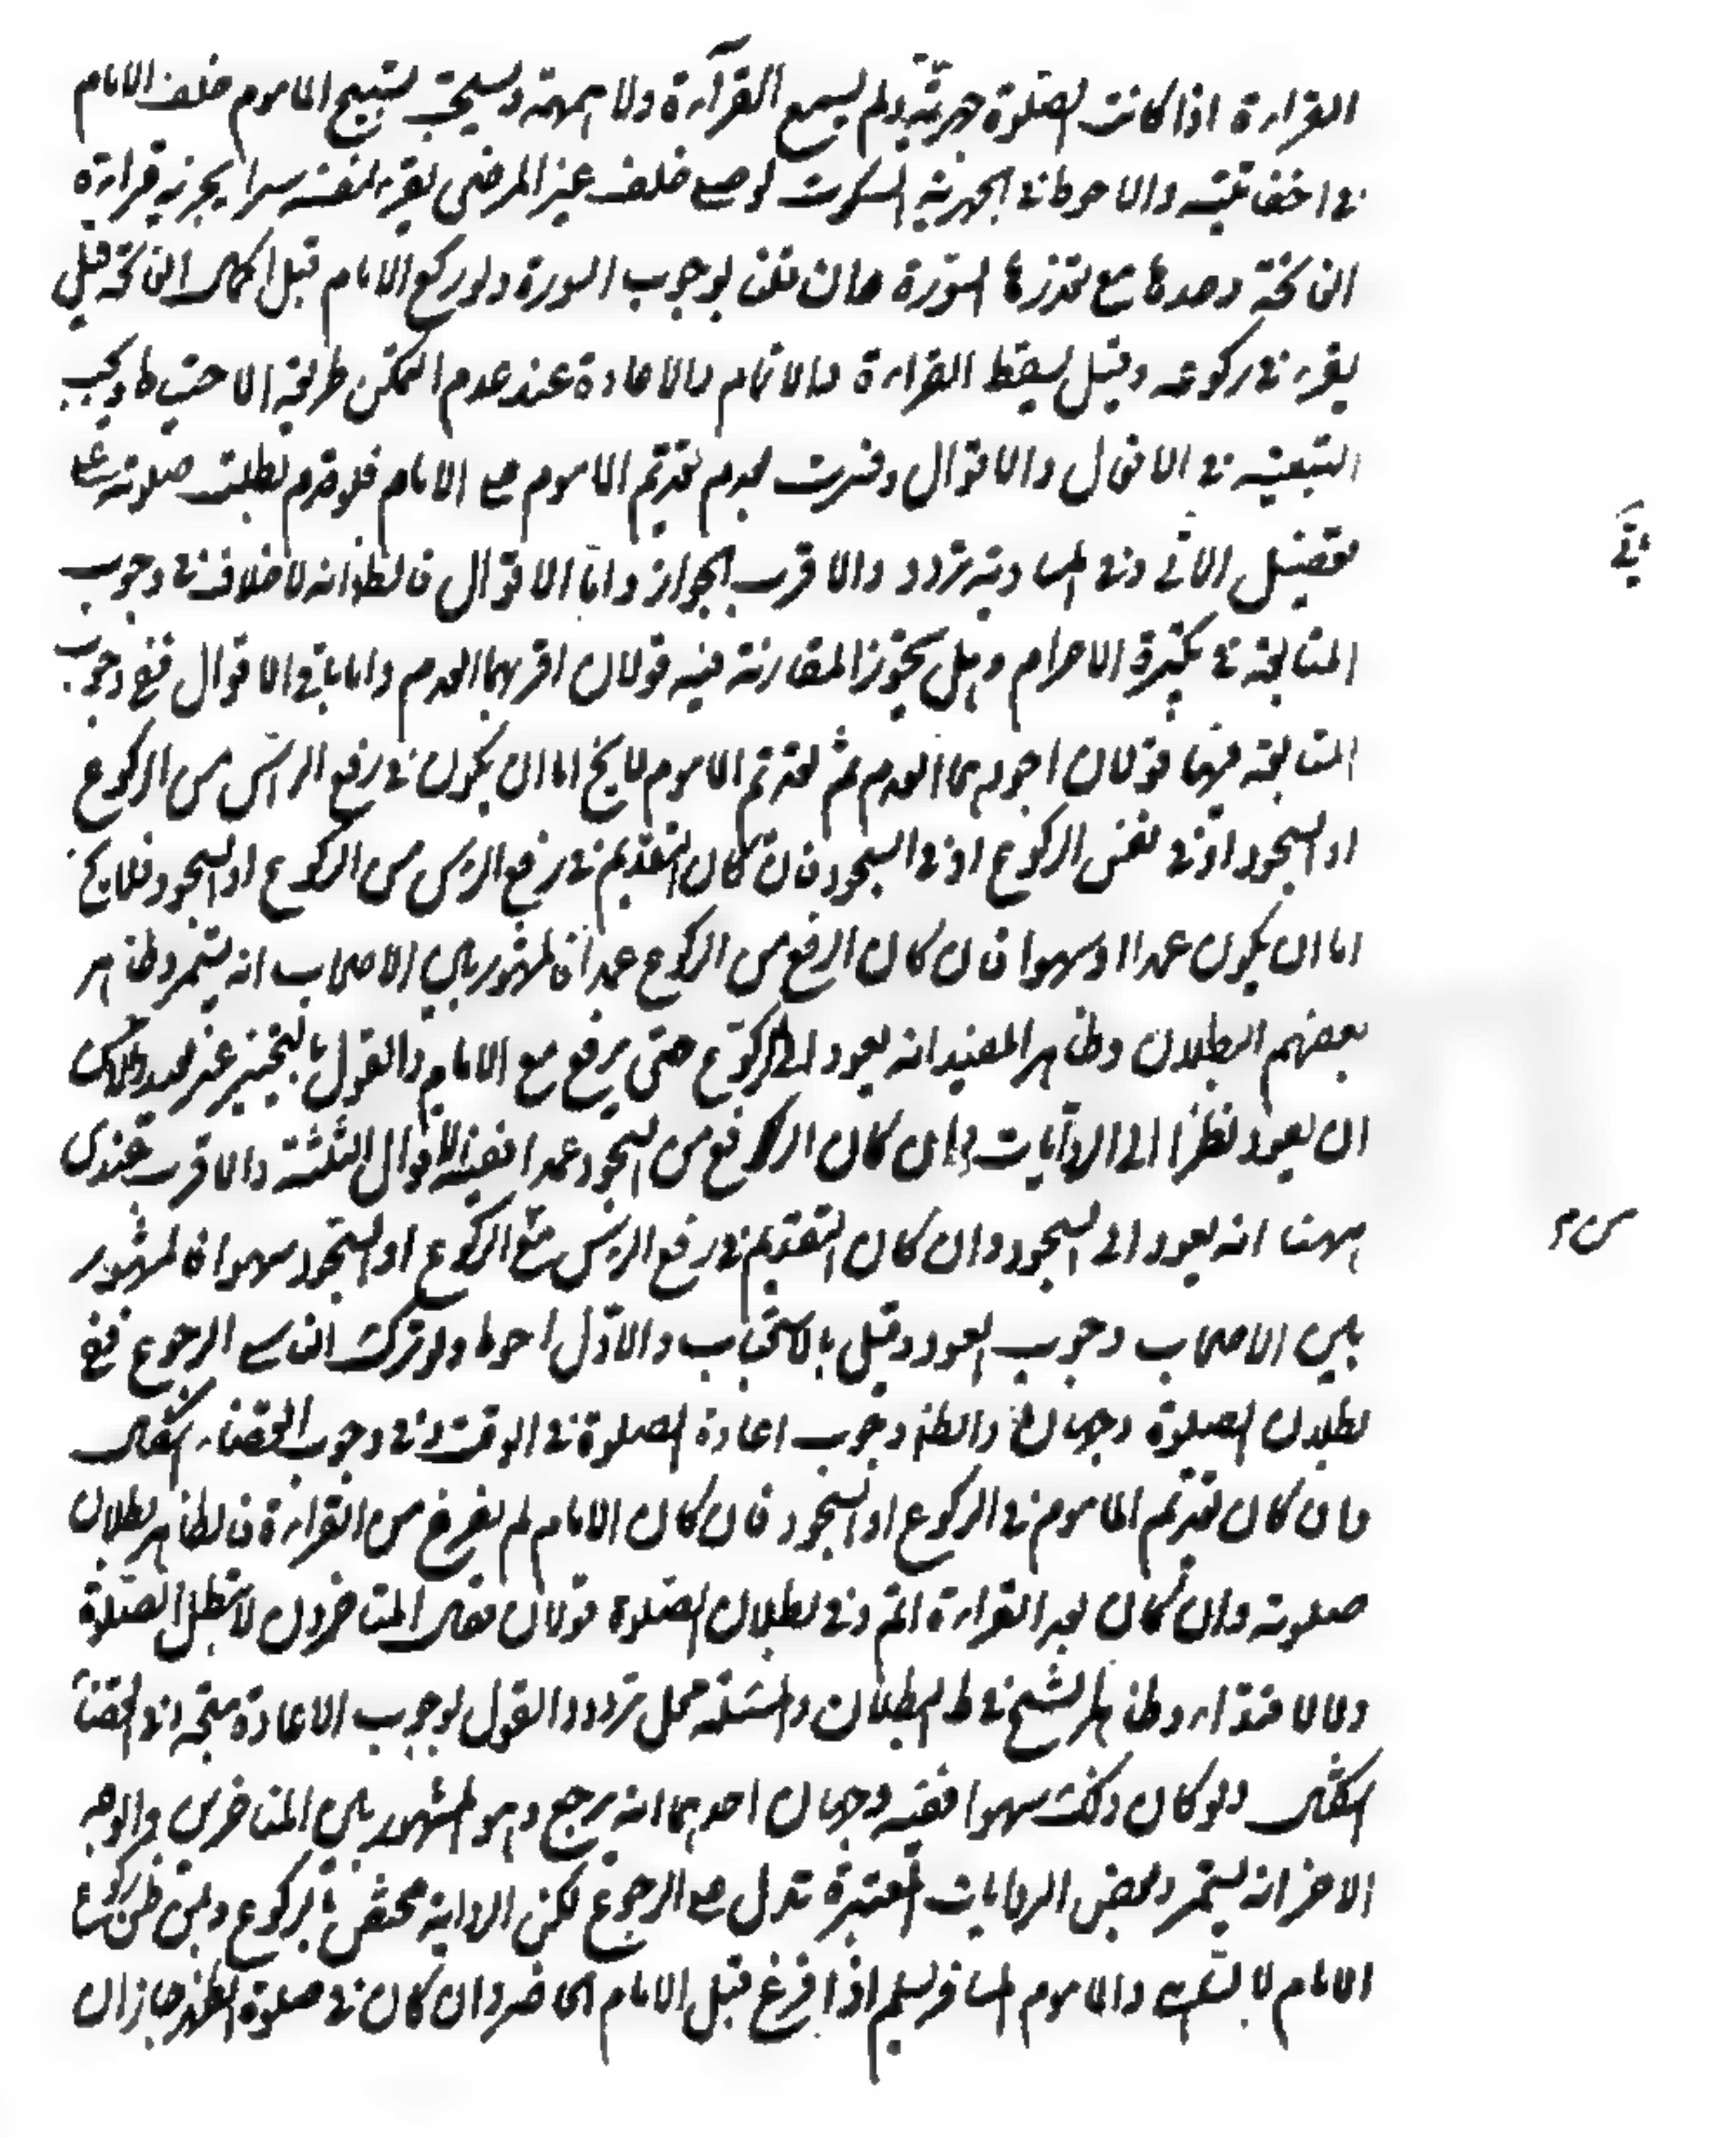 القراءة اذا كانت الصلوة جهرية ولم يسمع القرآءة ولا همهمة ويستحب تسبيح الماموم خلف الامام
في اخفاتية والاحوط في الجهرية السكوت لو صلى خلف غير المرضي يقرء لنفسه سرا يجزيه قراءة
الفاتحة وحدها مع تعذرها السورة وان قلنا بوجوب السورة ولو ركع الامام قبل اكمال الفاتحة قيل
يقرء في ركوعه وقيل يسقط القراءة والاتمام والاعادة عند عدم التمكن طريقة الاحتياط ويجب
التبعية في الافعال والاقوال وفسرت بعدم تقدم الماموم على الامام فلو تقدم بطلت صلوته على
تفصيل الاتي وفي المساوية تردد والاقرب الجواز واما الاقوال فالظ انه لا خلاف في وجوب
المتابعة في تكبيرة الاحرام وهل يجوز المقارنة فيه قولان اقربهما العدم واما باقي الاقوال ففي وجوب
المتابعة فيها قولان اجودهما العدم ثم تقدم الماموم لا يخ اما ان يكون في رفع الراس من الركوع
او السجود او في نفس الركوع او في السجود فان كان التقديم في رفع الراس من الركوع او السجود فلا يخ
اما ان يكون عمدا او سهوا فان كان الرفع من الركوع عمدا فالمشهور بين الاصحاب انه يستمر وظاهر
بعضهم البطلان وظاهر المفيد انه يعود الى الركوع حتى يرفع مع الامام والقول بالتخيير غير بعيد
ان يعود نظرا الى الروايات وان كان الرفع من السجود عمدا ففيه الاقوال الثلثة والاقرب عندى
ههنا انه يعود الى السجود وان كان التقديم في رفع الراس من الركوع او السجود سهوا فالمشهور
بين الاصحاب وجوب العود وقيل بالاستحباب والاول احوط ولو ترك الناسي الرجوع ففي
بطلان الصلوة وجهان والظ وجوب اعادة الصلوة في الوقت وفي وجوب القضاء اشكال
وان كان تقدم الماموم في الركوع او السجود فان كان الامام لم يفرغ من القراءة فالظاهر بطلان
صلوته وان كان بعد القراءة اثم وفي بطلان الصلوة قولان فقال المتاخرون لا تبطل الصلوة
ولا الاقتداء وظاهر الشيخ في ط البطلان والمسئلة محل تردد والقول بوجوب الاعادة متجه وفي القضا
اشكال ولو كان ذلك سهوا ففيه وجهان احدهما انه يرجع وهو المشهور بين المتاخرين والوجه
الاخر انه يستمر وبعض الروايات المعتبرة تدل على الرجوع لكن الرواية مختص بالركوع وبمن ظن ركوع
الامام لا بالسجود والماموم المسافر يسلم اذا فرغ قبل الامام الحاضر وان كان في صلوة الظهر جاز ان